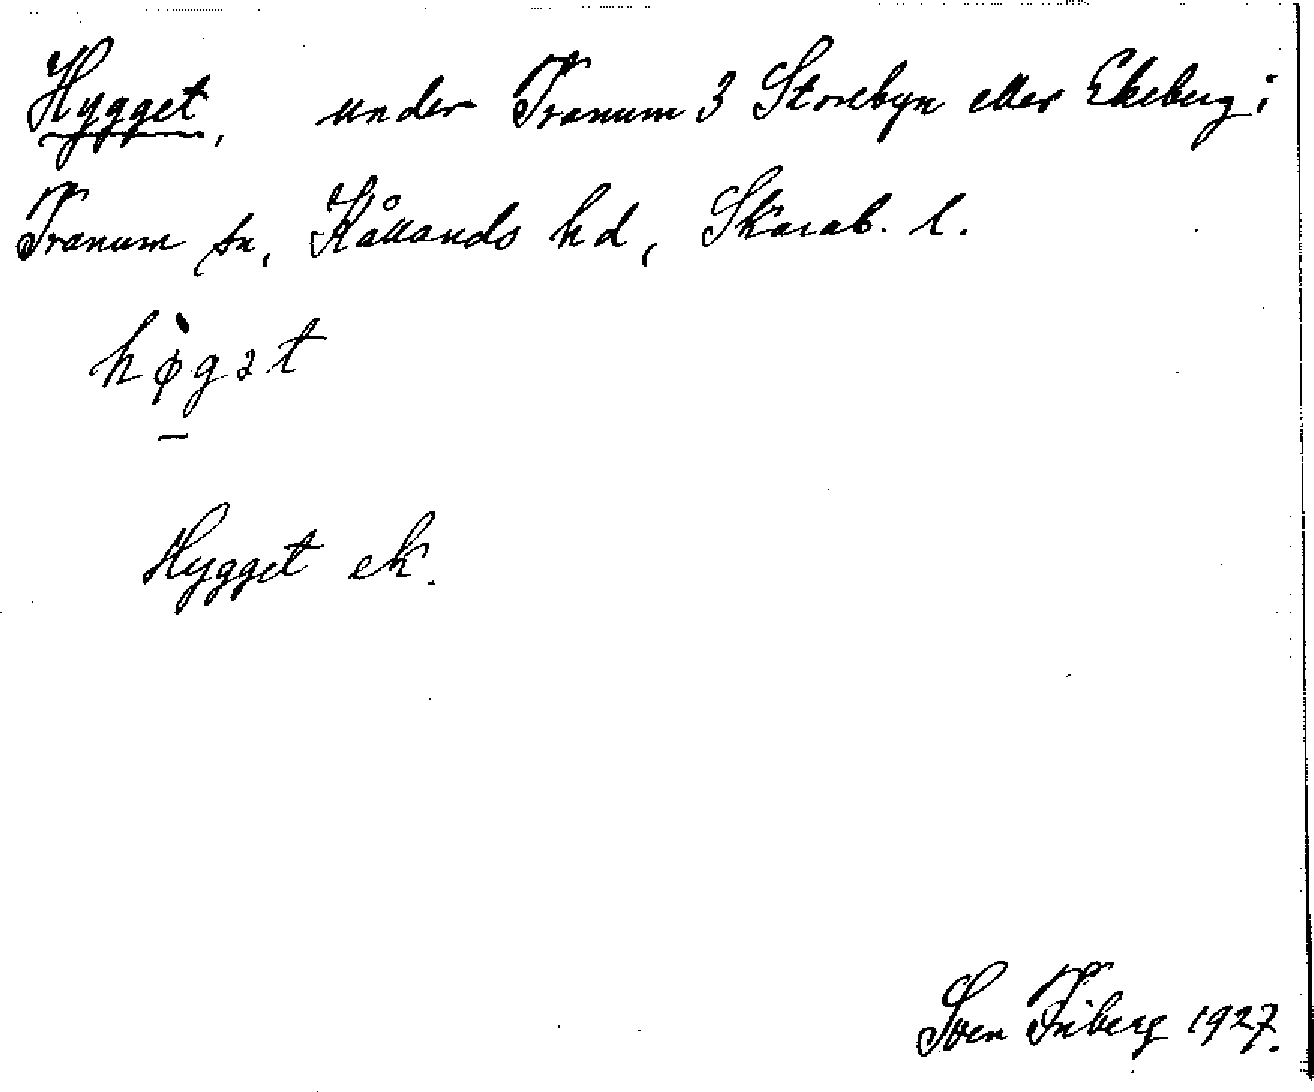 Hygget, under Tranum 3 Storebyn eller Ekeberg i
Tranum sn, Kållands hd, Skarab. l.
hø̀gət
Hygget ek.
Sven Friberg 1927.